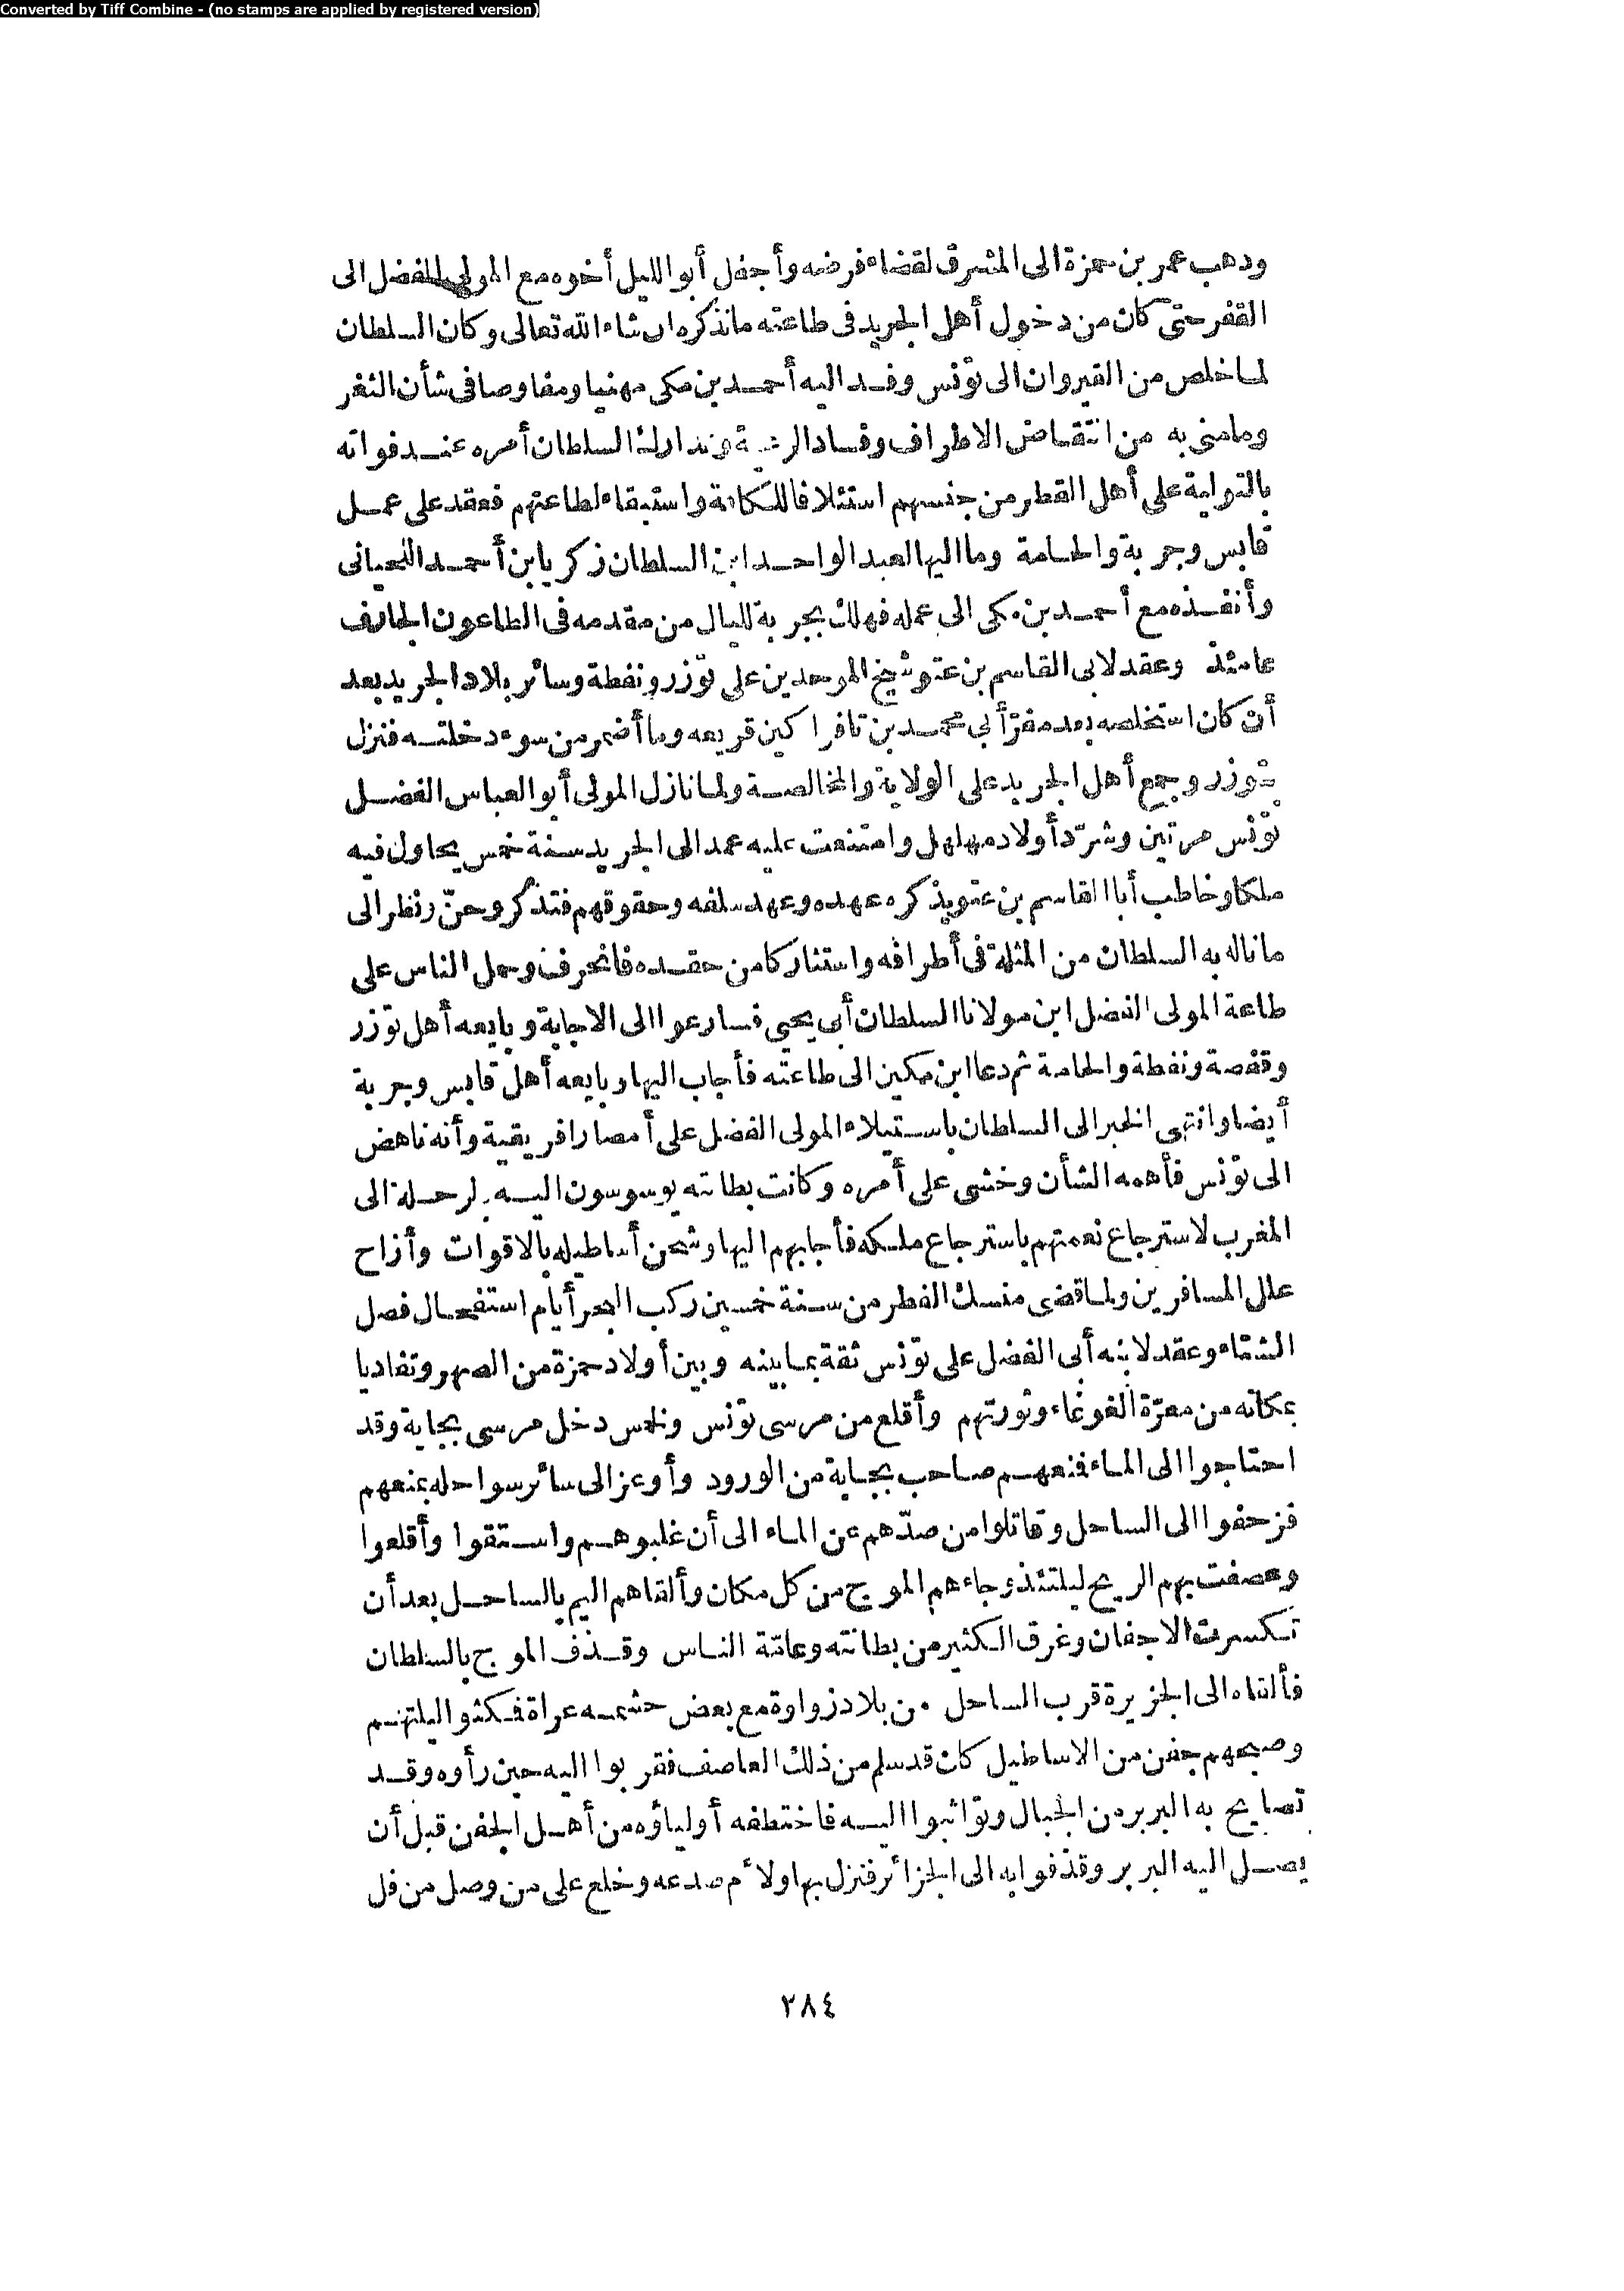 Converted by Tiff Combine - (no stamps are applied by registered version)
وذهب عمر بن حمزة الى المشرق لقضاء فرضه وأجفل أبو الليل أخوه مع المولى الفضل الى
القفر حتى كان من دخول أهل الجريد فى طاعته ما نذكره ان شاء الله تعالى وكان السلطان
لما خلص من القيروان الى تونس وفد اليه أحمد بن مكى مهنيا ومفاوضا فى شأن الثغر
وما منى به من انتقاض الاطراف وفساد الرعية وتدارك السلطان أمره عند فواته
بالتولية على أهل القطر من جنسهم استئلافا للكافة واستبقاء لطاعتهم فعقد على عمل
قابس وجربة والحامة وما اليها لعبد الواحد ابن السلطان زكريا بن أحمد اللحيانى
وأنفذه مع أحمد بن مكى الى عمله فهلك بجربة لليال من مقدمه فى الطاعون الجارف
عامئذ وعقد لابى القاسم بن عتو شيخ الموحدين على توزر ونفطة وسائر بلاد الجريد بعد
أن كان استخلصه بعد مفرّ أبى محمد بن تافراكين قريعه وما أضمر من سوء دخلته فنزل
بتوزر وجمع أهل الجريد على الولاية والمخالصة ولما نازل المولى أبو العباس الفضل
تونس مرتين وشرّد أولاد مهلهل وامتنعت عليه عمد الى الجريد سنة خمس يحاول فيه
ملكا وخاطب أبا القاسم بن عتو يذكره عهده وعهد سلفه وحقوقهم فتذكر وحنّ ونظر الى
ما ناله به السلطان من المثلة فى أطرافه واستثار كامن حقده فانحرف وحمل الناس على
طاعة المولى الفضل ابن مولانا السلطان أبى يحيى فسارعوا الى الاجابة وبايعه أهل توزر
وقفصة ونفطة والحامة ثم دعا ابن مكين الى طاعته فأجاب اليها وبايعه أهل قابس وجربة
أيضا وانتهى الخبر الى السلطان باستيلاء المولى الفضل على أمصار افريقية وأنه ناهض
الى تونس فأهمه الشأن وخشى على أمره وكانت بطانته يوسوسون اليه بالرحلة الى
المغرب لاسترجاع نعمتهم باسترجاع ملكه فأجابهم اليها وشحن أساطيله بالاقوات وأزاح
علل المسافرين ولما قضى منسك الفطر من سنة خمسين ركب البحر أيام استفحال فصل
الشتاء وعقد لابنه أبى الفضل على تونس ثقة بما بينه وبين أولاد حمزة من الصهر وتفاديا
بمكانه من معرّة الغوغاء وثورتهم وأقلع من مرسى تونس ولخمس دخل مرسى بجاية وقد
احتاجوا الى الماء فمنعهم صاحب بجاية من الورود وأوعز الى سائر سواحله بمنعهم
فزحفوا الى الساحل وقاتلوا من صدّهم عن الماء الى أن غلبوهم واستقوا وأقلعوا
وعصفت بهم الريح ليلتئذ وجاءهم الموج من كل مكان وألقاهم اليم بالساحل بعد أن
تكسرت الاجفان وغرق الكثير من بطانته وعامّة الناس وقذف الموج بالسلطان
فألقاه الى الجزيرة قرب الساحل من بلاد زواوة مع بعض حشمه عراة فمكثوا ليلتهم
وصبحهم جفن من الاساطيل كان قد سلم من ذلك العاصف فقربوا اليه حين رأوه وقد
تصايح به البربر من الجبال وتواثبوا اليه فاختطفه أولياؤه من أهل الجفن قبل أن
يصل اليه البربر وقذفوا به الى الجزائر فنزل بها ولأم صدعه وخلع على من وصل من فل
٢٨٤